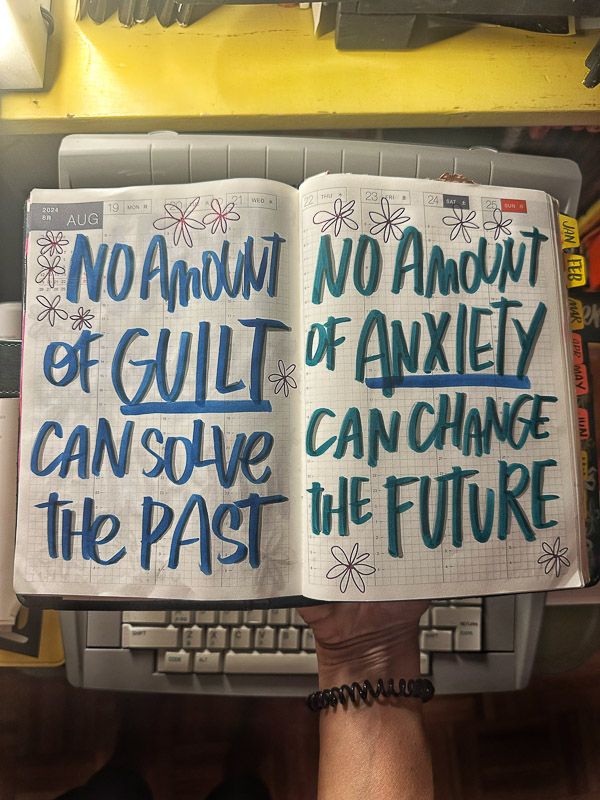 2024
8月 AUG
19 MON 月
21 WED 水
NO AMOUNT
OF GUILT
CAN SOLVE
THE PAST
22 THU 木
23 FRI
24 SAT 土
25 SUN 日
NO AMOUNT
OF ANXIETY
CAN CHANGE
THE FUTURE
JAN
FEB
MAR
APR
MAY
JUN
SHIFT Z X C V B N
CODE ALT